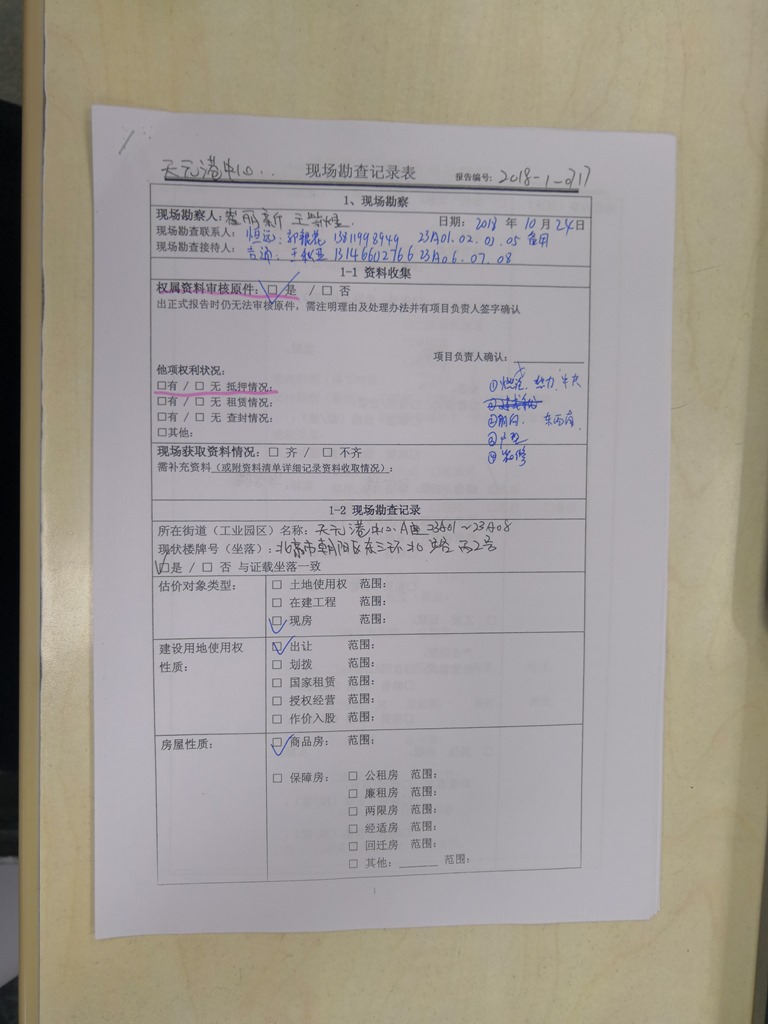 天元港中心.. 现场勘查记录表 报告编号: 2018-1-0717
1、现场勘察
现场勘察人: 日期: 2018 年 10 月 24 日
现场勘查联系人: 恒远: 郭银花 13811998949 23A01.02.03.05 食用
现场勘查接待人: 王秋亚 13146602766 23A06.07.08
1-1 资料收集
权属资料审核原件: □ 是 / □ 否
出正式报告时仍无法审核原件, 需注明理由及处理办法并有项目负责人签字确认
项目负责人确认:
他项权利状况:
□有 / □ 无 抵押情况:
□有 / □ 无 租赁情况:
□有 / □ 无 查封情况:
□其他:
①燃气. 热力.
②朝向. 东西南.
③户型
④装修
现场获取资料情况: □ 齐 / □ 不齐
需补充资料(或附资料清单详细记录资料收取情况):
1-2 现场勘查记录
所在街道(工业园区)名称: 天元港中心A座23A01~23A08
现状楼牌号(坐落): 北京市朝阳区东三环北路丙2号
□是 / □ 否 与证载坐落一致
估价对象类型: □ 土地使用权 范围:
□ 在建工程 范围:
□ 现房 范围:
建设用地使用权性质: □ 出让 范围:
□ 划拨 范围:
□ 国家租赁 范围:
□ 授权经营 范围:
□ 作价入股 范围:
房屋性质: □ 商品房: 范围:
□ 保障房: □ 公租房 范围:
□ 廉租房 范围:
□ 两限房 范围:
□ 经适房 范围:
□ 回迁房 范围:
□ 其他:______ 范围:
1